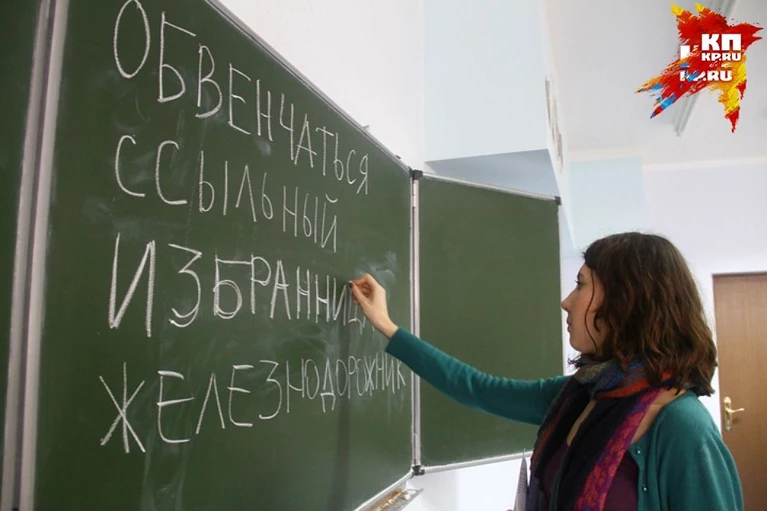 ОБВЕНЧАТЬСЯ
ССЫЛЬНЫЙ
ИЗБРАННИЦ
ЖЕЛЕЗНОДОРОЖНИК
КП
KP.RU